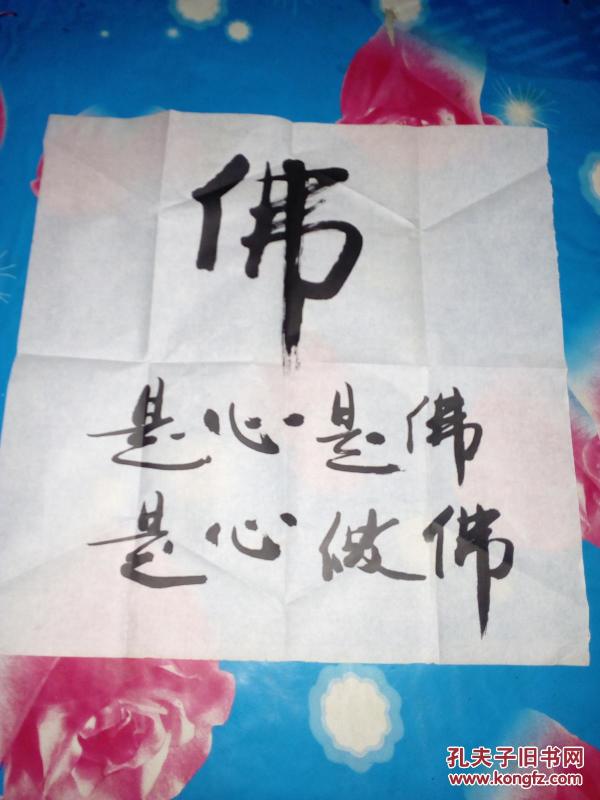 佛
是心是佛
是心做佛
孔夫子旧书网
www.kongfz.com